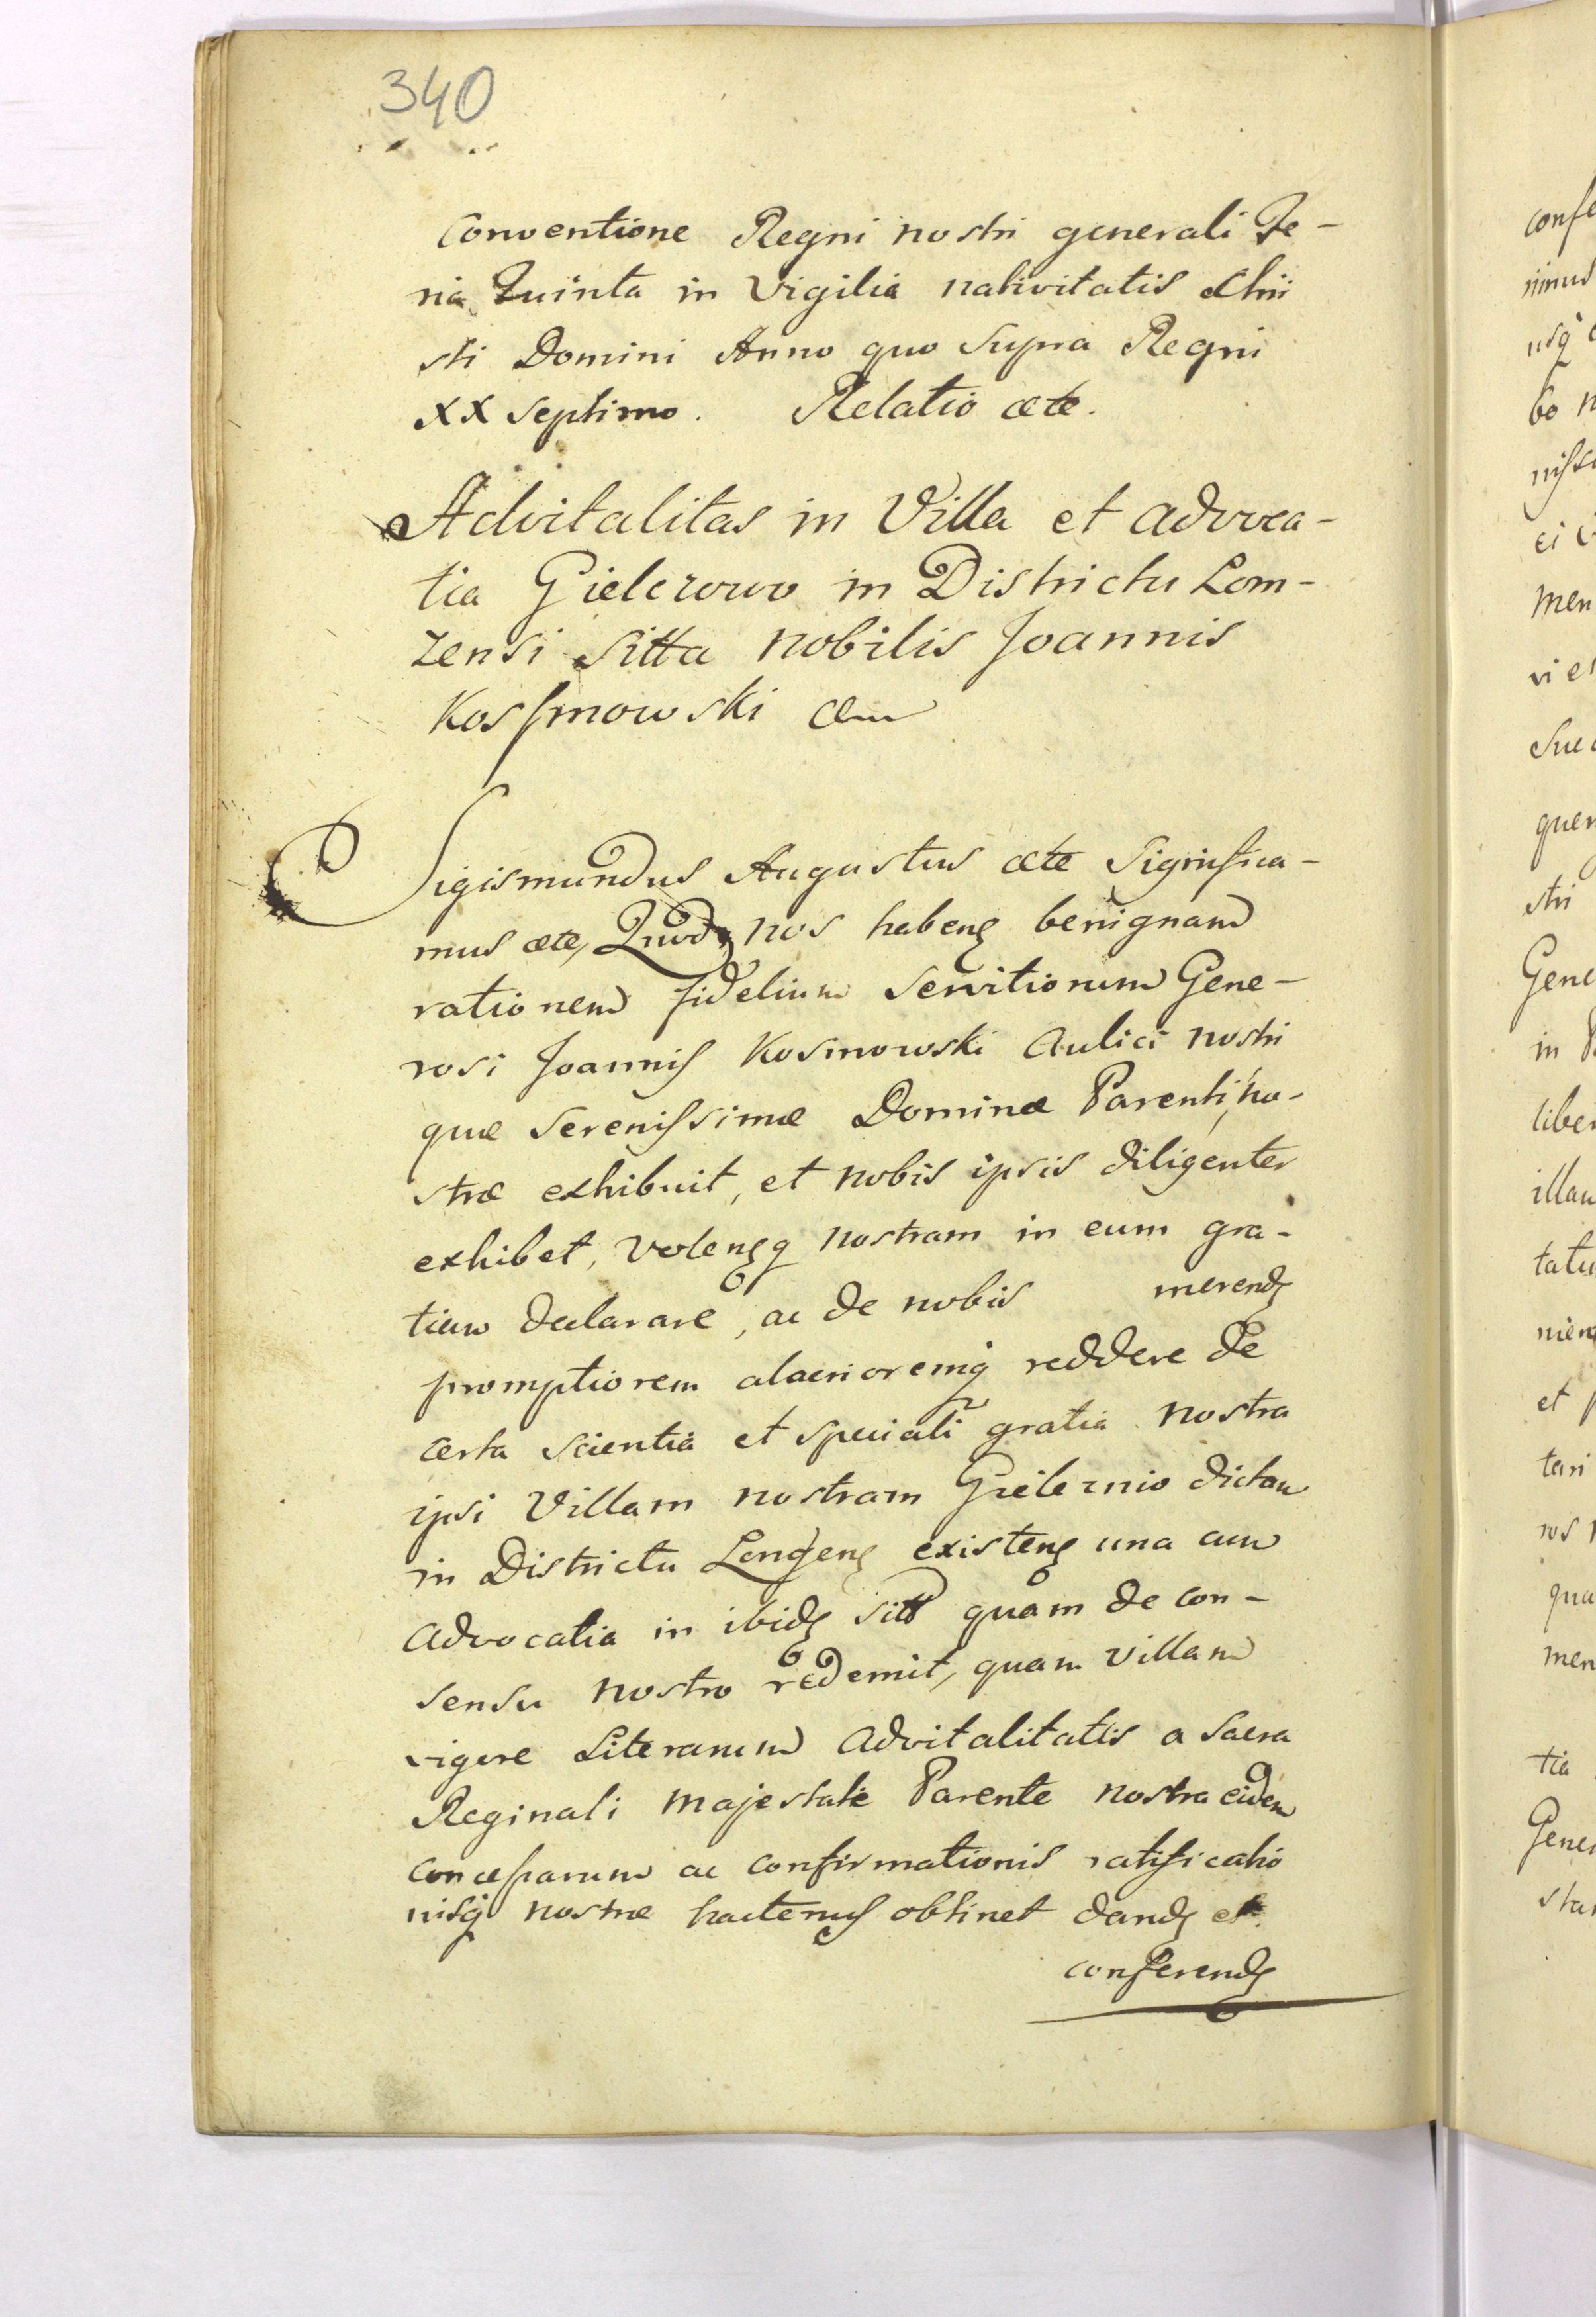 340
Conventione Regni nostri generali Fe-
ria Quinta in Vigilia nativitatis Chri
sti Domini Anno quo supra Regni
XX septimo. Relatio cete.
Advitalitas in Villa et advoca-
tia Gielczowo in Districtu Lom-
zensi sitta nobilis Joannis
Kossmowski
Sigismundus Augustus cete Significa-
mus cete, Quod nos habenȩ benignam
rationem fidelium servitiorum Gene-
rosi Joannis Kosmowski Aulici nostri
quæ Serenissimæ Dominæ Parenti no-
stræ exhibuit, et nobis ipsis diligenter
exhibet, volenȩq nostram in eum gra-
tiam declarare, ac de nobis merendȩ
promptiorem alacrioremq reddere de
certa scientia et speciali gratia nostra
ipsi Villam nostram dictam
in Districtu existenȩ una cum
advocatia in ibidȩ sitt quam de con-
sensu nostro redemit, quam villam
vigore Literarum advitalitatis a Sacra
Reginali Majestate Parente nostra eidem
concessarum ac confirmationis ratificatio
nisq nostræ hactenus obtinet dandȩ et
conferendȩ
confe
nimus
usq
bo n
ei
men
vi e
sue
quen
stri
Gene
in P
liber
illam
tatu
et p
teri
ros
qua
men
tia
Gene
sta